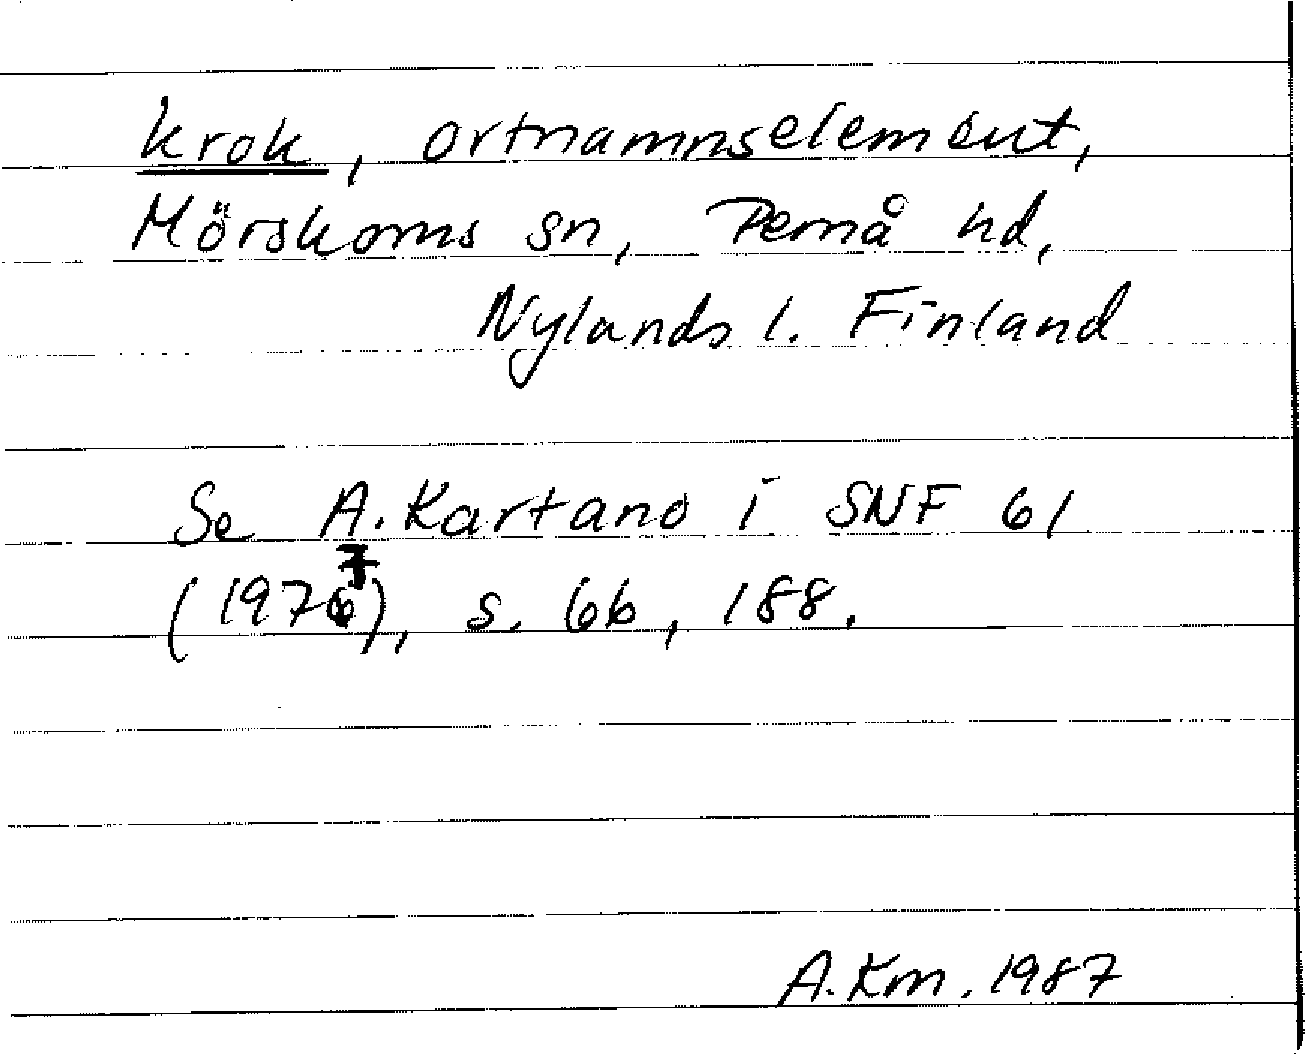 krok, ortnamnselement,
Mörskoms sn, Pernå hd,
Nylands l. Finland
Se A. Kartano i SNF 61
(1977), s. 66, 188.
A.Km. 1987